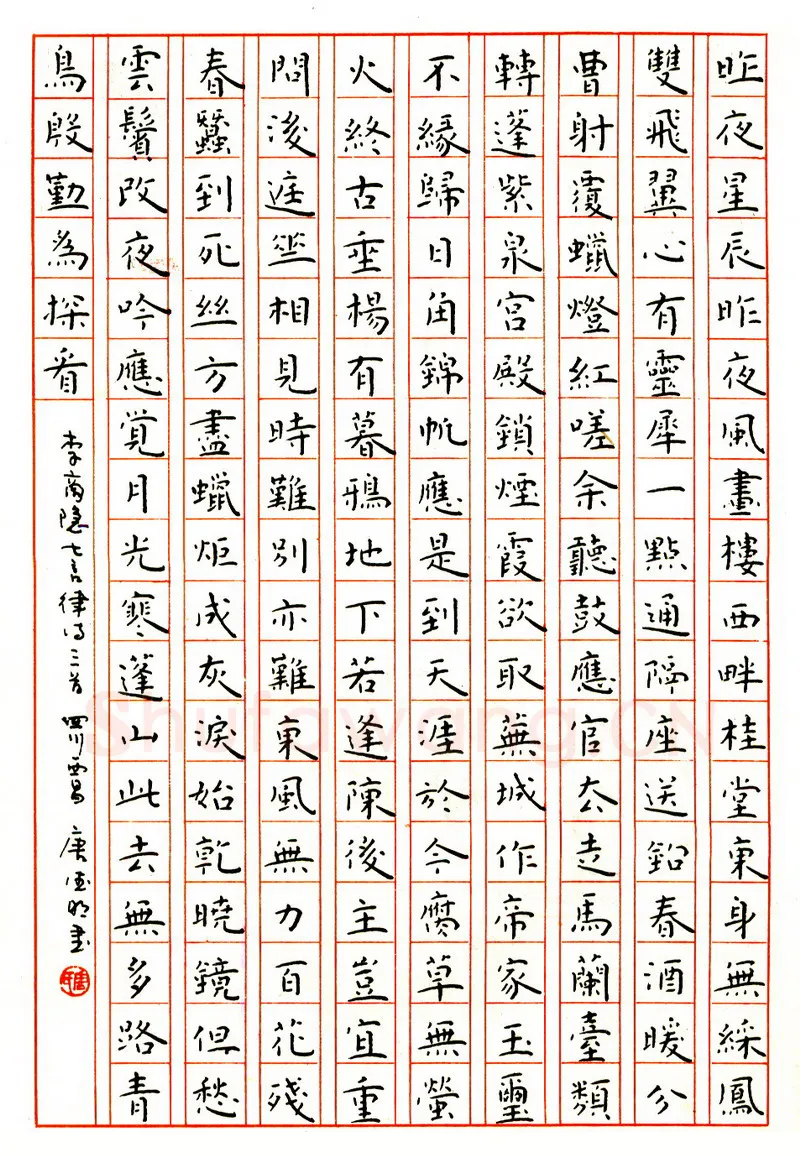 昨夜星辰昨夜風畫樓西畔桂堂東身無綵鳳
雙飛翼心有靈犀一點通隔座送鉤春酒暖分
曹射覆蠟燈紅嗟余聽鼓應官去走馬蘭臺類
轉蓬紫泉宮殿鎖煙霞欲取蕪城作帝家玉璽
不緣歸日角錦帆應是到天涯於今腐草無螢
火終古垂楊有暮鴉地下若逢陳後主豈宜重
問後庭華相見時難別亦難東風無力百花殘
春蠶到死絲方盡蠟炬成灰淚始乾曉鏡但愁
雲鬢改夜吟應覺月光寒蓬山此去無多路青
鳥殷勤為探看
李商隐七言律诗三首 四川西昌 唐 明書
Shufawang.CN